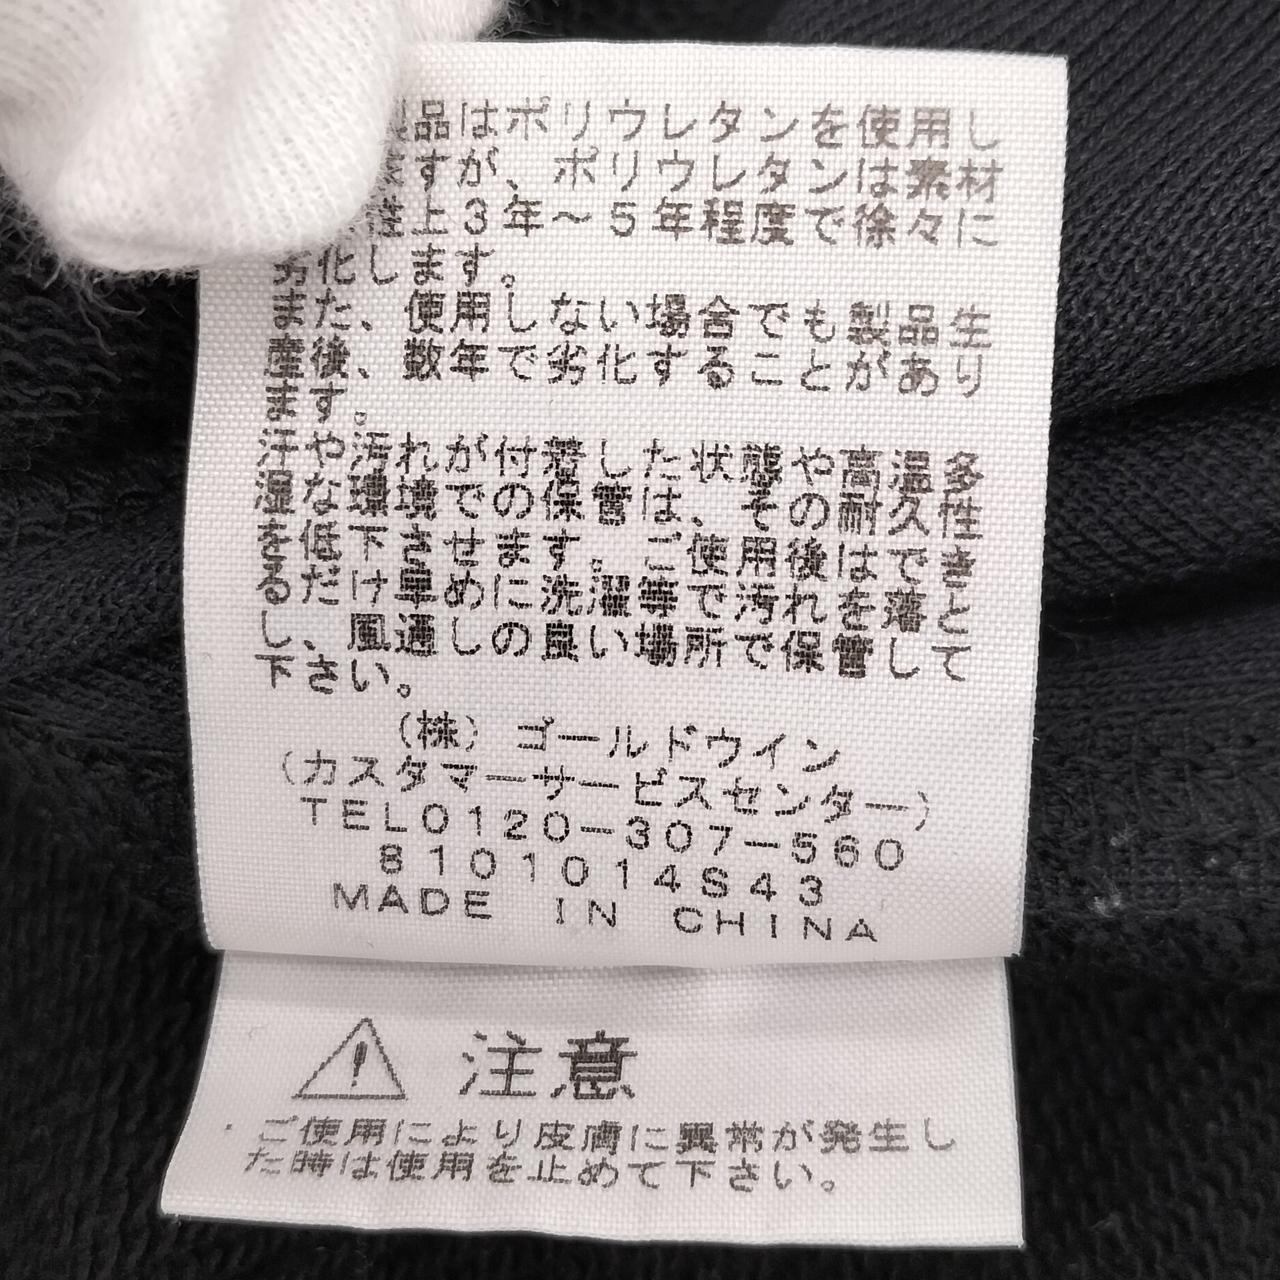 品はポリウレタンを使用し
ますが、ポリウレタンは素材
性上3年～5年程度で徐々に
劣化します。
また、使用しない場合でも製品生
産後、数年で劣化することがあり
ます。
汗や汚れが付着した状態や高温多
湿な環境での保管は、その耐久性
を低下させます。ご使用後はでき
るだけ早めに洗濯等で汚れを落と
し、風通しの良い場所で保管して
下さい。
(株)ゴールドウイン
(カスタマーサービスセンター)
TEL0120-307-560
8101014S43
MADE IN CHINA
注意
・ご使用により皮膚に異常が発生し
た時は使用を止めて下さい。